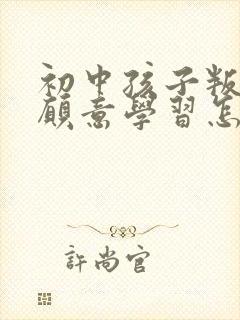 初中孩子叛
願意學習怎
許尚官